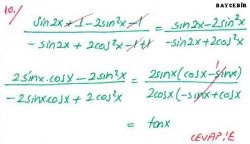 BAYCEBİR
10.) sin2x + 1 - 2sin²x - 1 / -sin2x + 2cos²x - 1 + 1 = sin2x - 2sin²x / -sin2x + 2cos²x
2sinx.cosx - 2sin²x / -2sinxcosx + 2cos²x = 2sinx(cosx - sinx) / 2cosx(-sinx + cosx
= tanx
CEVAP: E